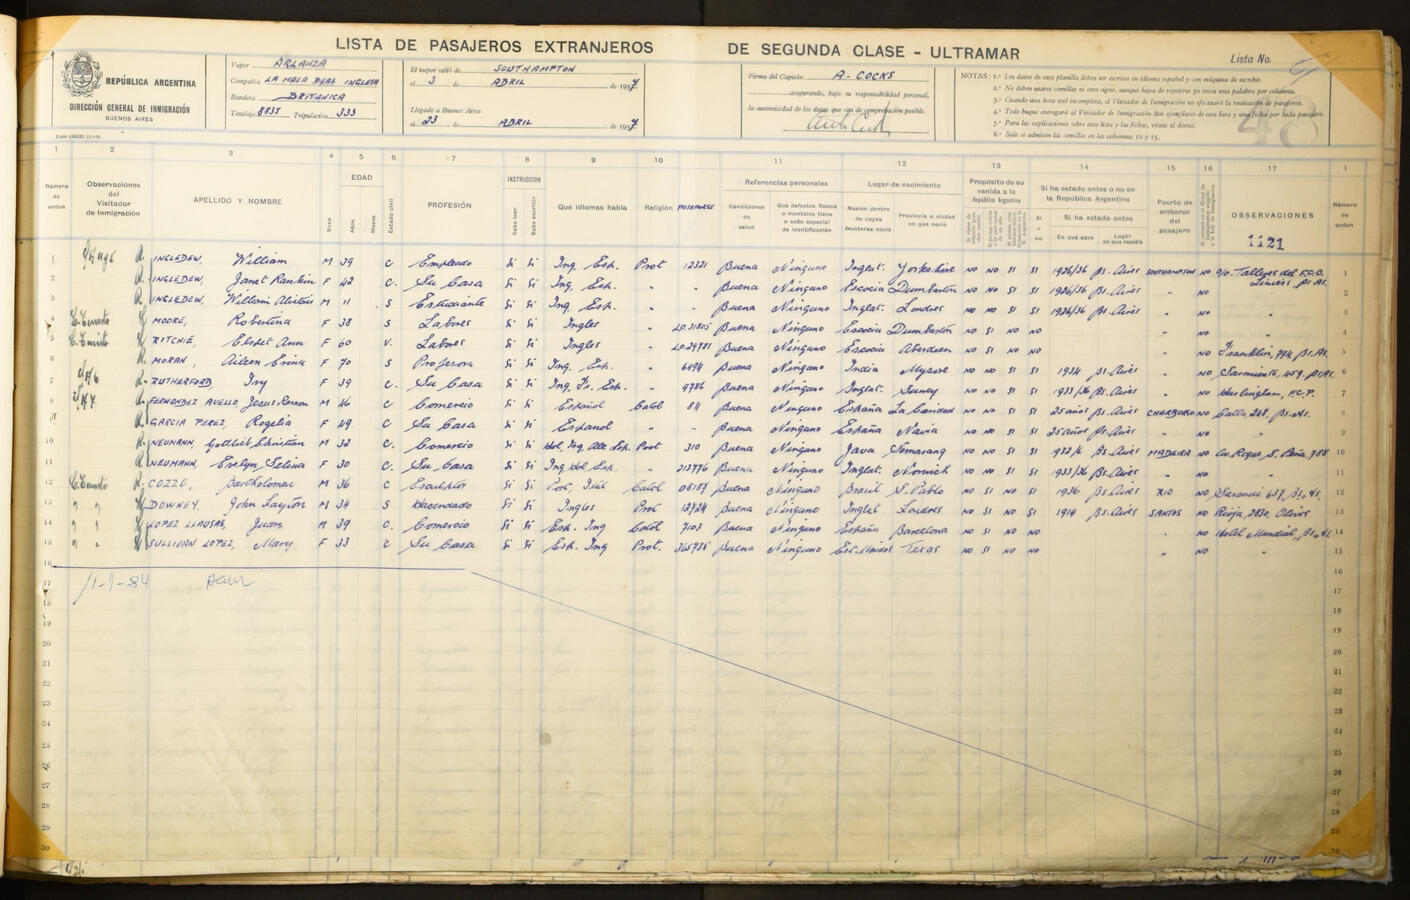 LISTA DE PASAJEROS EXTRANJEROS DE SEGUNDA CLASE - ULTRAMAR
Lista No.
REPÚBLICA ARGENTINA
DIRECCIÓN GENERAL DE INMIGRACIÓN
BUENOS AIRES
Vapor ARLANZA
Compañía LA MALA REAL INGLESA
Bandera BRITANICA
Tonelaje 8835 Tripulación 333
El vapor salió de SOUTHAMPTON
el 3 de ABRIL de 1937
Llegado a Buenos Aires
el 23 de ABRIL de 1937
Firma del Capitán A. COCKS
asegurando, bajo su responsabilidad personal,
la autenticidad de los datos que son de comprobación posible.
NOTAS: 1.ª Los datos de esta planilla deben ser escritos en idioma español y con máquina de escribir.
2.ª No deben usarse comillas ni otro signo, aunque haya de repetirse 30 veces una palabra por columna.
3.ª Cuando una lista esté incompleta, el Visitador de Inmigración no efectuará la revisación de pasajeros.
4.ª Todo buque entregará al Visitador de Inmigración dos ejemplares de esta lista y una ficha por cada pasajero.
5.ª Para las explicaciones sobre esta lista y las fichas, véase al dorso.
6.ª Solo se admiten las comillas en las columnas 10 y 15.
48
1 2 3 4 5 6 7 8 9 10 11 12 13 14 15 16 17 1
Número de orden
Observaciones del Visitador de Inmigración
APELLIDO Y NOMBRE
Sexo
EDAD
Años
Meses
Estado civil
PROFESIÓN
INSTRUCCION
Sabe leer
Sabe escribir
Qué idiomas habla
Religión
PASAPORTE
Referencias personales
Condiciones de salud
Qué defectos físicos o mentales tiene o seña especial de identificación
Lugar de nacimiento
Nación dentro de cuyas fronteras nació
Provincia o ciudad en que nació
Propósito de su venida a la República Argentina
Si ha estado antes o no en la República Argentina
Si o no
Si ha estado antes
En qué años
Lugar en que residió
Puerto de embarco del pasajero
OBSERVACIONES
1121
Número de orden
1 INGLEDEW, William M 39 C Empleado Si Si Ing. Esp. Prot 12321 Buena Ninguno Inglat. Yorkshire NO NO SI SI 1926/36 Bs. Aires SOUTHAMPTON NO c/o. Talleres del F.C.O. 1
Liniers Bs. As.
2 INGLEDEW, Janet Rankin F 42 C. Su Casa Si Si Ing. Esp. " " Buena Ninguno Escocia Dumbarton NO NO SI SI 1926/36 Bs. Aires " NO 2
3 INGLEDEW, William M 11 S Estudiante Si Si Ing. Esp. " " Buena Ninguno Inglat. Londres NO NO SI SI 1926/36 Bs. Aires " NO " 3
4 MOORE, Robertina F 38 S Labores Si Si Ingles " Buena Ninguno Escocia Dumbarton NO SI NO NO " NO "
5 RITCHIE, Ann F 60 V. Labores Si Si Ingles " Buena Ninguno Escocia Aberdeen NO SI NO NO " NO Franklin, Bs. As. 5
6 MORAN, Aileen F 70 S Profesora Si Si Ing. Esp. " 6494 Buena Ninguno India Mysore NO NO SI SI 1934 Bs. Aires " NO Sarmiento, 459. Bs. As. 6
7 RUTHERFORD, Ivy F 39 C. Su Casa Si Si Ing. Fr. Esp. " 9786 Buena Ninguno Inglat. Surrey NO NO SI SI 1933/36 Bs. Aires " NO Hurlingham, F.C.P. 7
8 FERNANDEZ AVELLO, Jesus Ramon M 46 C Comercio Si Si Español Catol 84 Buena Ninguno España La Caridad NO NO SI SI 25 años Bs. Aires CHERBURGO NO Bs. As. 8
GARCIA PEREZ, Rogelia F 49 C Su Casa Si Si Espanol " " Buena Ninguno España Navia NO NO SI SI 25 años Bs. Aires " NO " 9
10 NEUMANN, Gottlieb Christian M 32 C. Comercio Si Si Hol, Ing, Ale Esp. Prot 310 Buena Ninguno Java Semarang NO NO SI SI Bs. Aires MADEIRA NO Av. Roque S. Peña, 788 10
11 NEUMANN, Evelyn Selina F 30 C. Su Casa Si Si Ing Hol, Esp. " 213776 Buena Ninguno Inglat. Norwich NO NO SI SI 1933/36 Bs. Aires " NO "
12 COZZO, Bartholomeu M 36 C Escultor Si Si Port, Ital Catol 08187 Buena Ninguno Brasil S. Pablo NO SI NO SI 1936 Bs. Aires RIO NO Sarandi 637, Bs. As. 12
13 DOWNEY, John Layton M 34 S Hacendado Si Si Ingles Prot Buena Ninguno Inglat Londres NO SI NO SI 1914 Bs. Aires SANTOS NO Rioja, 2830, Olivos 13
14 LOPEZ LLAUSAS, Juan M 39 C. Comercio Si Si Esp. Ing Catol 7103 Buena Ninguno España Barcelona NO SI NO NO " NO Hotel Mundial, Bs. As 14
15 SULLIVAN LOPEZ, Mary F 33 C Su Casa Si Si Esp. Ing Prot. 365735 Buena Ninguno Est. Unidos Texas NO SI NO NO " NO " 15
16 16
17 17
18 18
19 19
20 20
21 21
22 22
23 23
24 24
25 25
26 26
27 27
28 28
29 29
30 30